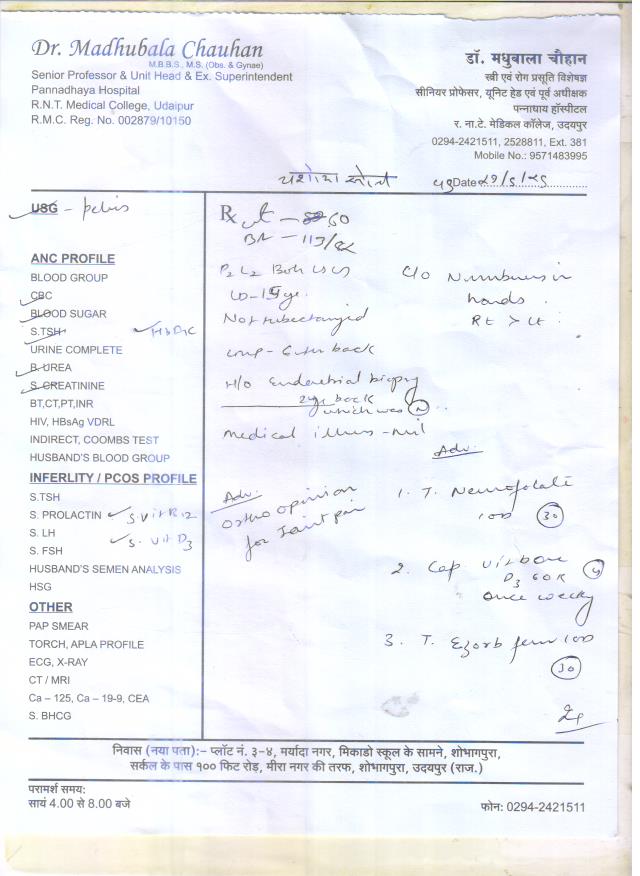 Dr. Madhubala Chauhan
M.B.B.S., M.S. (Obs. & Gynae)
Senior Professor & Unit Head & Ex. Superintendent
Pannadhaya Hospital
R.N.T. Medical College, Udaipur
R.M.C. Reg. No. 002879/10150
डॉ. मधुबाला चौहान
स्त्री एवं रोग प्रसूति विशेषज्ञ
सीनियर प्रोफेसर, यूनिट हेड एवं पूर्व अधीक्षक
पन्नाधाय हॉस्पीटल
र. ना.टे. मेडिकल कॉलेज, उदयपुर
0294-2421511, 2528811, Ext. 381
Mobile No.: 9571483995
Date
USG - pelvis
ANC PROFILE
BLOOD GROUP
CBC
BLOOD SUGAR
S.TSH HbA1C
URINE COMPLETE
B. UREA
S. CREATININE
BT,CT,PT,INR
HIV, HBsAg VDRL
INDIRECT, COOMBS TEST
HUSBAND'S BLOOD GROUP
INFERLITY / PCOS PROFILE
S.TSH
S. PROLACTIN S. Vit B12
S. LH
S. Vit D3
S. FSH
HUSBAND'S SEMEN ANALYSIS
HSG
OTHER
PAP SMEAR
TORCH, APLA PROFILE
ECG, X-RAY
CT / MRI
Ca – 125, Ca – 19-9, CEA
S. BHCG
Rx wt - 60
P2 L2 Both LSCS
Not tubectomized
H/O Endometrial biopsy
2yr back
which was N
medical illness - nil
Adv.
Ortho opinion
for Joint pain
C/O Numbness in
hands.
Rt > Lt
Adv.
1. T. Neurofolate
100 30
2. Cap
D3 60K 4
once weekly
3. T. Ezorb fem 100
30
निवास (नया पता):– प्लॉट नं. ३–४, मर्यादा नगर, मिकाडो स्कूल के सामने, शोभागपुरा,
सर्कल के पास १०० फिट रोड़, मीरा नगर की तरफ, शोभागपुरा, उदयपुर (राज.)
परामर्श समय:
सायं 4.00 से 8.00 बजे
फोन: 0294-2421511